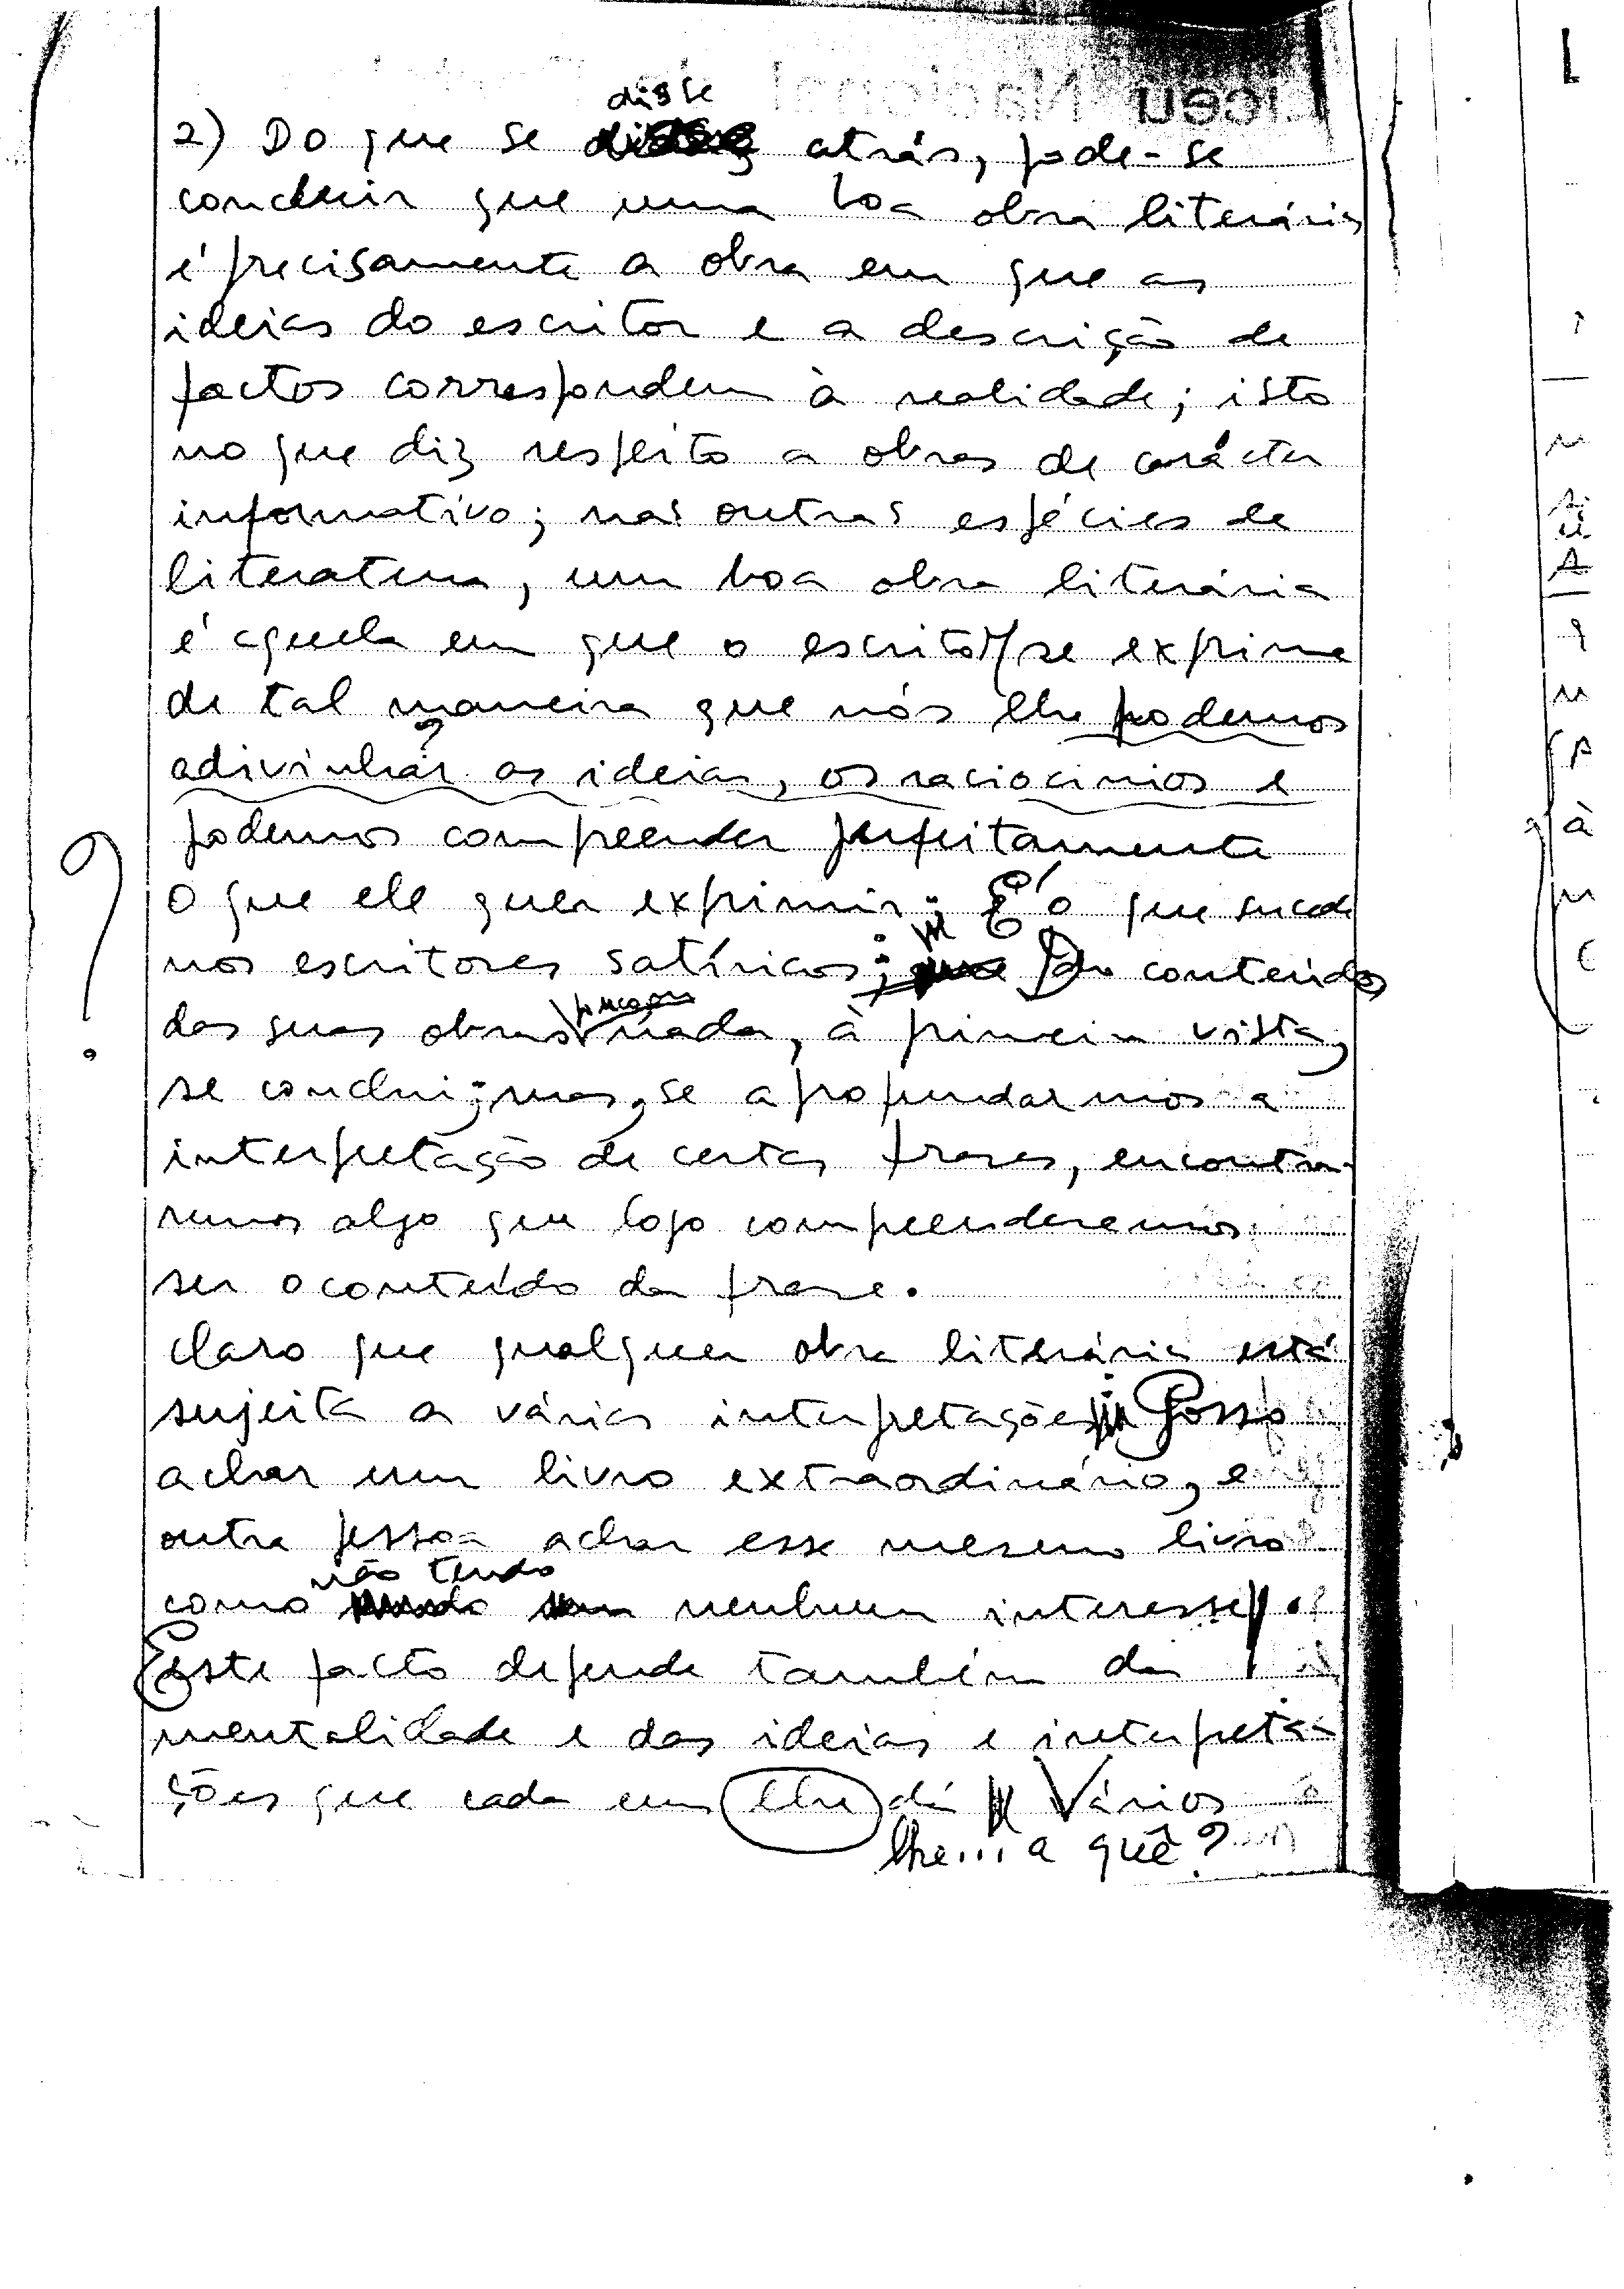 Liceu Nacional
disse
2) Do que se atrás, pode-se
concluir que uma boa obra literária
é precisamente a obra em que as
ideias do escritor e a descrição de
factos correspondem à realidade; isto
no que diz respeito a obras de carácter
informativo; nas outras espécies de
literatura, um boa obra literária
é aquela em que o escritor se exprime
de tal maneira que nós lhe podemos
?
adivinhar as ideias, os raciocinios e
podemos compreender perfeitamente
o que ele quer exprimir; É o que sucede
nos escritores satíricos; Do conteúdo
das suas obras nada, à primeira vista,
se conclui; mas, se aprofundarmos a
interpretação de certas frases, encontra-
remos algo que logo compreenderemos
ser o conteúdo da frase.
?
Claro que qualquer obra literária está
sujeita a várias interpretações. Posso
achar um livro extraordinário, e
outra pessoa achar esse mesmo livro
não tendo
como nenhum interesse.
Este facto depende também da
mentalidade e das ideias e interpreta-
ções que cada um lhe dá Vários
lhe... a quê?